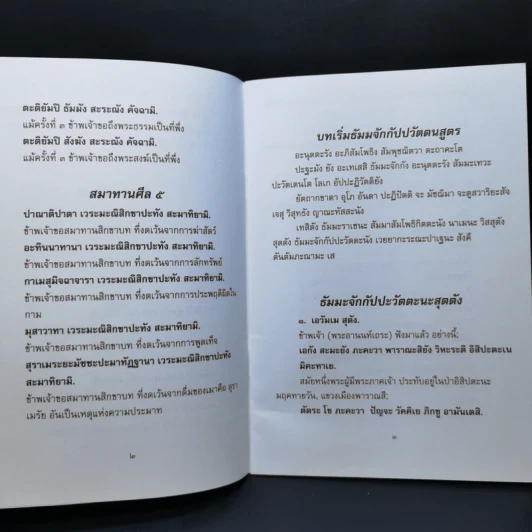 ตะติยัมปิ ธัมมัง สะระณัง คัจฉามิ.
แม้ครั้งที่ ๓ ข้าพเจ้าขอถึงพระธรรมเป็นที่พึ่ง
ตะติยัมปิ สังฆัง สะระณัง คัจฉามิ.
แม้ครั้งที่ ๓ ข้าพเจ้าขอถึงพระสงฆ์เป็นที่พึ่ง
สมาทานศีล ๕
ปาณาติปาตา เวระมะณีสิกขาปะทัง สะมาทิยามิ.
ข้าพเจ้าขอสมาทานสิกขาบท ที่งดเว้นจากการฆ่าสัตว์
อะทินนาทานา เวระมะณีสิกขาปะทัง สะมาทิยามิ.
ข้าพเจ้าขอสมาทานสิกขาบท ที่งดเว้นจากการลักทรัพย์
กาเมสุมิจฉาจารา เวระมะณีสิกขาปะทัง สะมาทิยามิ.
ข้าพเจ้าขอสมาทานสิกขาบท ที่งดเว้นจากการประพฤติผิดใน
กาม
มุสาวาทา เวระมะณีสิกขาปะทัง สะมาทิยามิ.
ข้าพเจ้าขอสมาทานสิกขาบท ที่งดเว้นจากการพูดเท็จ
สุราเมระยะมัชชะปะมาทัฏฐานา เวระมะณีสิกขาปะทัง
สะมาทิยามิ.
ข้าพเจ้าขอสมาทานสิกขาบท ที่งดเว้นจากการดื่มของเมาคือ สุรา
เมรัย อันเป็นเหตุแห่งความประมาท
๒
บทเริ่มธัมมจักกัปปวัตตนสูตร
อะนุตตะรัง อะภิสัมโพธิง สัมพุชฌิตวา ตะถาคะโต
ปะฐะมัง ยัง อะเทเสสิ ธัมมะจักกัง อะนุตตะรัง สัมมะเทวะ
ปะวัตเตนโต โลเก อัปปะฏิวัตติยัง
ยัตถากขาตา อุโภ อันตา ปะฏิปัตติ จะ มัชฌิมา จะตูสวาริยะสัจ
เจสุ วิสุทธัง ญาณะทัสสะนัง
เทสิตัง ธัมมะราเชนะ สัมมาสัมโพธิกิตตะนัง นาเมนะ วิสสุตัง
สุตตัง ธัมมะจักกัปปะวัตตะนัง เวยยากะระณะปาเฐนะ สังคี
ตันตัมภะณามะ เส
ธัมมะจักกัปปะวัตตะนะสุตตัง
๑. เอวัมเม สุตัง.
ข้าพเจ้า (พระอานนท์เถระ) ฟังมาแล้ว อย่างนี้;
เอกัง สะมะยัง ภะคะวา พาราณะสิยัง วิหะระติ อิสิปะตะเน
มิคะทาเย.
สมัยหนึ่งพระผู้มีพระภาคเจ้า ประทับอยู่ในป่าอิสิปตะนะ
มฤคทายวัน, แขวงเมืองพาราณสี;
ตัตระ โข ภะคะวา ปัญจะ วัคคิเย ภิกขู อามันเตสิ.
๓